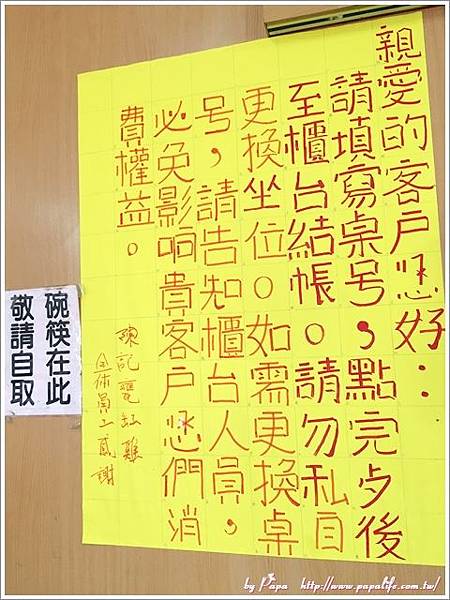 親愛的客户您好：
請填寫桌号，點完歺後
至櫃台結帳。請勿私自
更換坐位。如需更換桌
号，請告知櫃台人員，
必免影响貴客户您們消
費權益。
陳記甕缸雞
全体員工感謝
碗筷在此
敬請自取
by Papa http://www.papalife.com.tw/